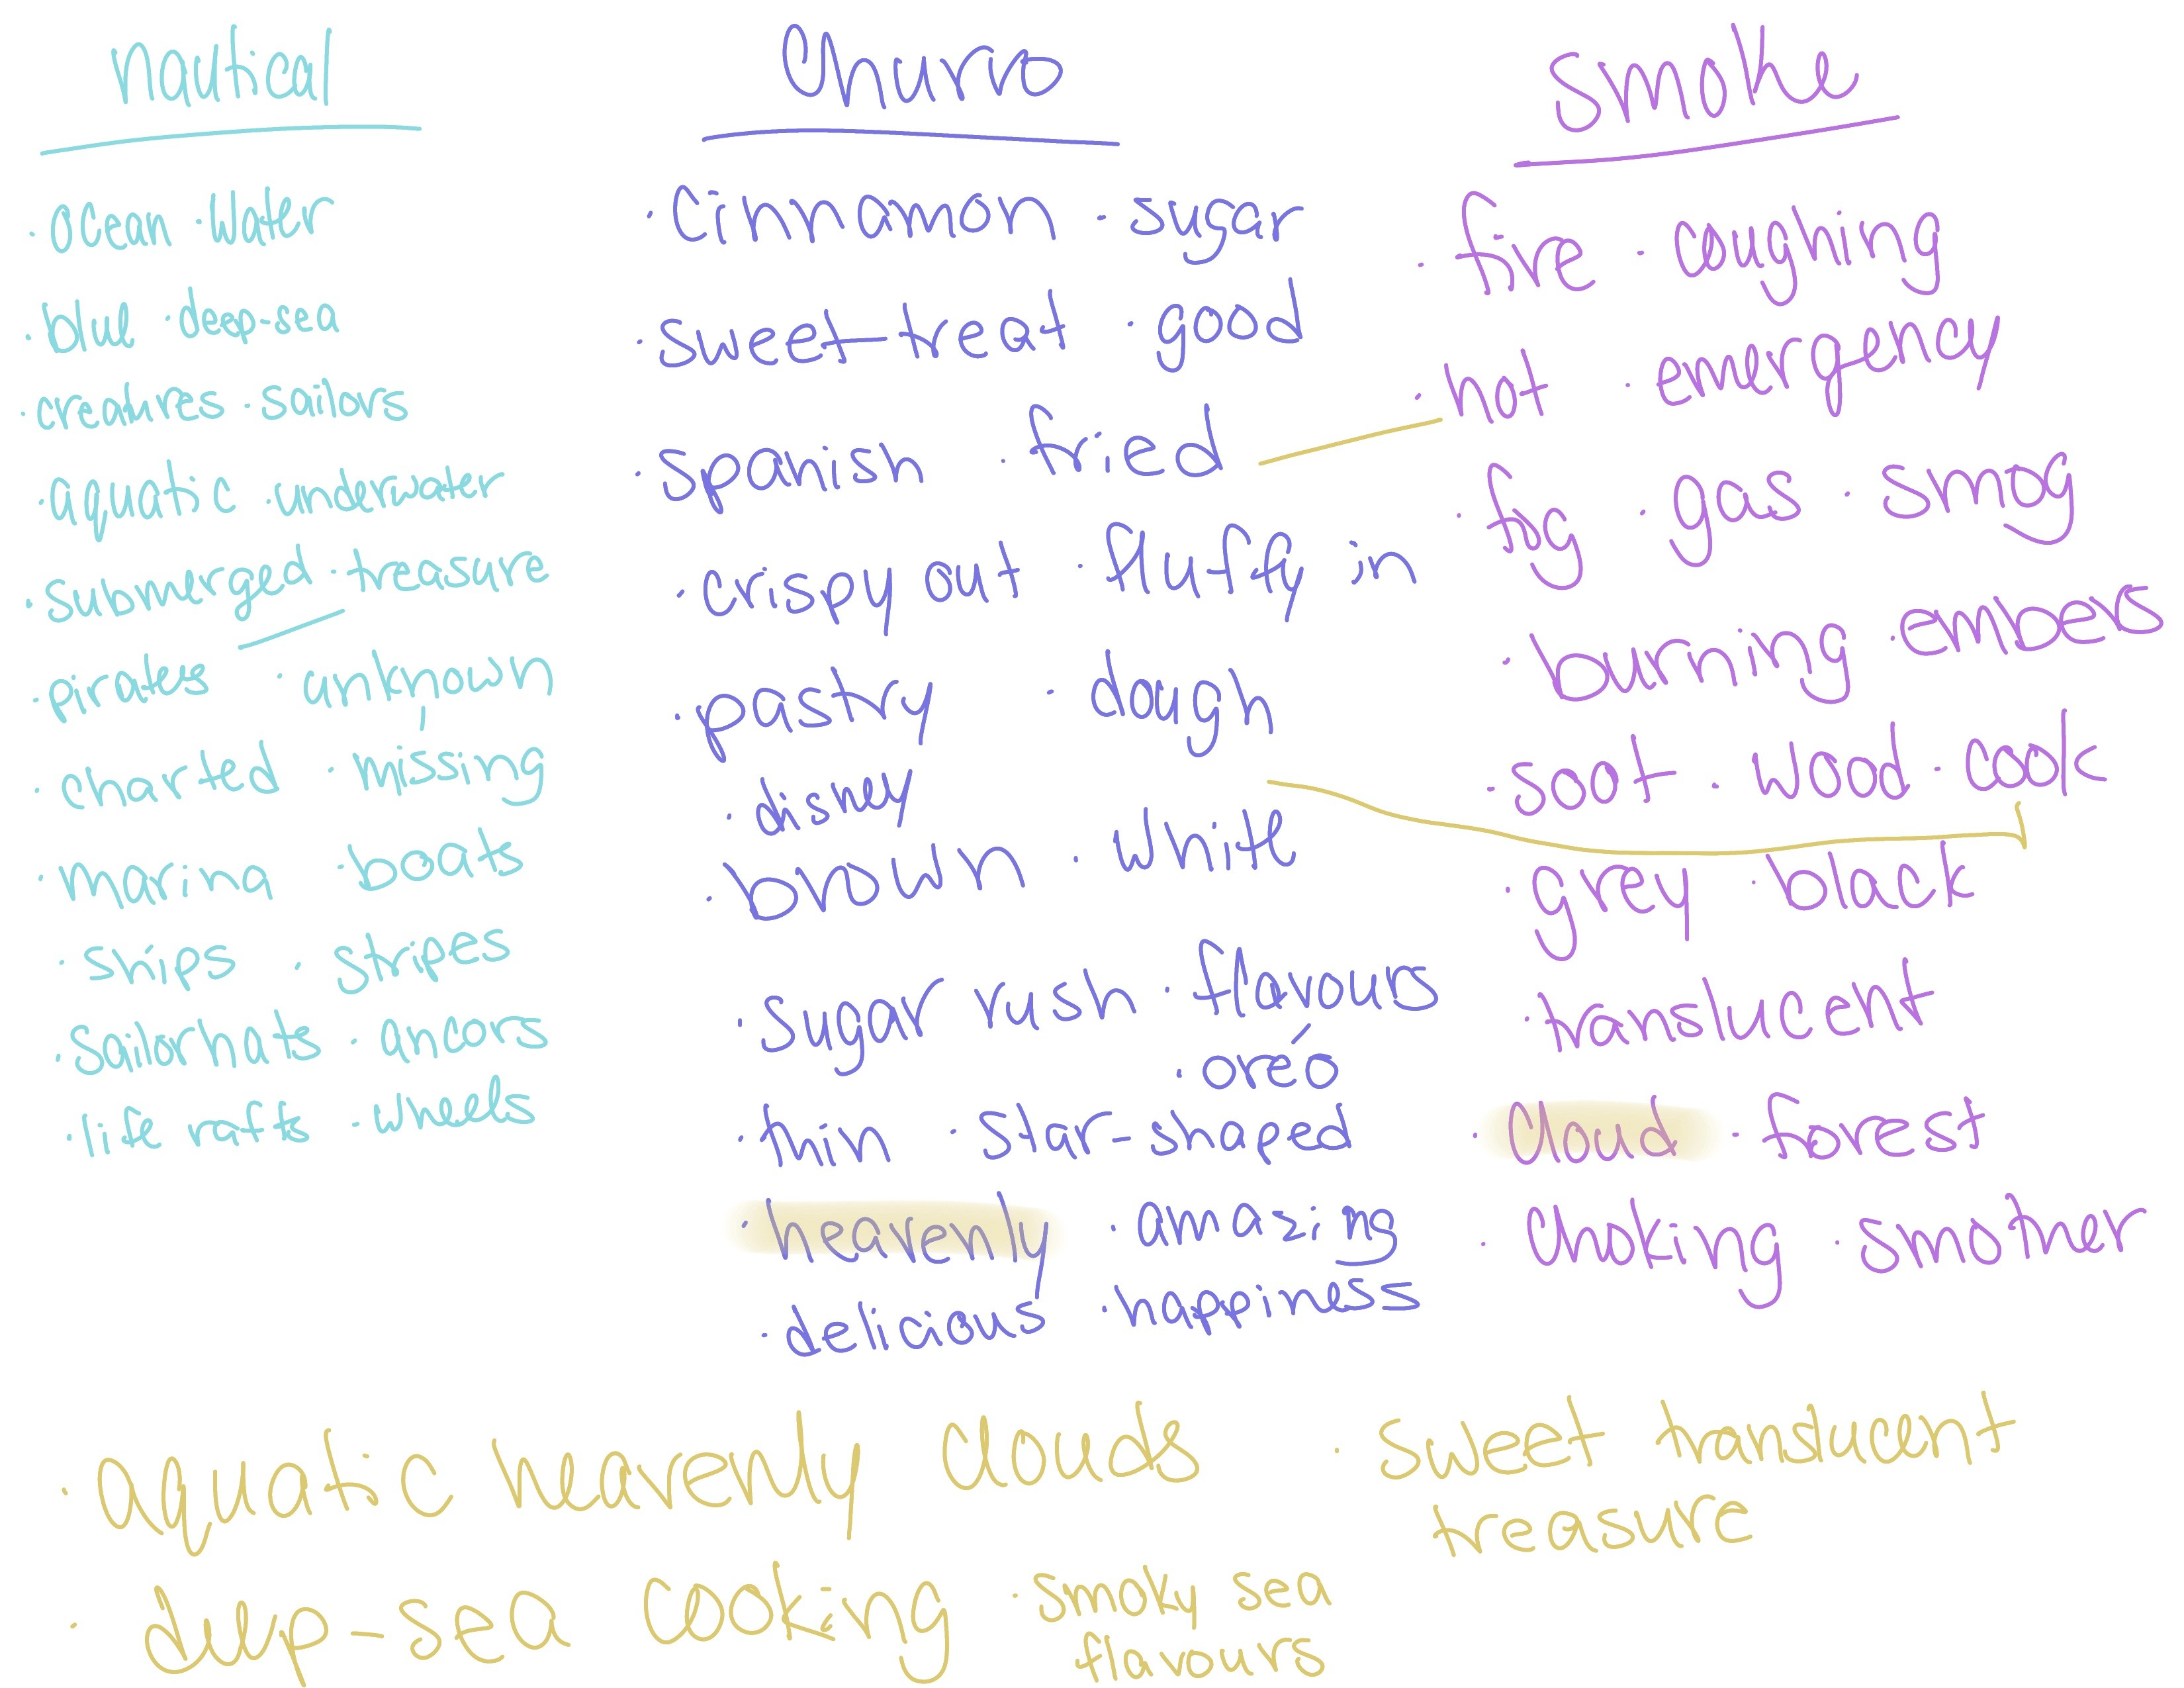 Nautical
· ocean · water
· blue · deep-sea
· creatures · sailors
· aquatic · underwater
· submerged · treasure
· pirates · unknown
· charted · missing
· marina · boats
· ships · stripes
· sailor hats · ancors
· life rafts · wheels
Churro
· cinnamon · sugar
· sweet treat · good
· spanish · fried
· crispy out · fluffy in
· pastry · dough
· disney
· brown · white
· sugar rush · flavours
· oreo
· thin · star-shaped
· heavenly · amazing
· delicious · happiness
Smoke
· fire · coughing
· hot · emergency
· fog · gas · smog
· burning · embers
· soot · wood · cook
· grey · black
· translucent
· cloud · forest
· choking · smother
· aquatic heavenly clouds
· sweet translucent
treasure
· deep-sea cooking
· smoky sea
flavours